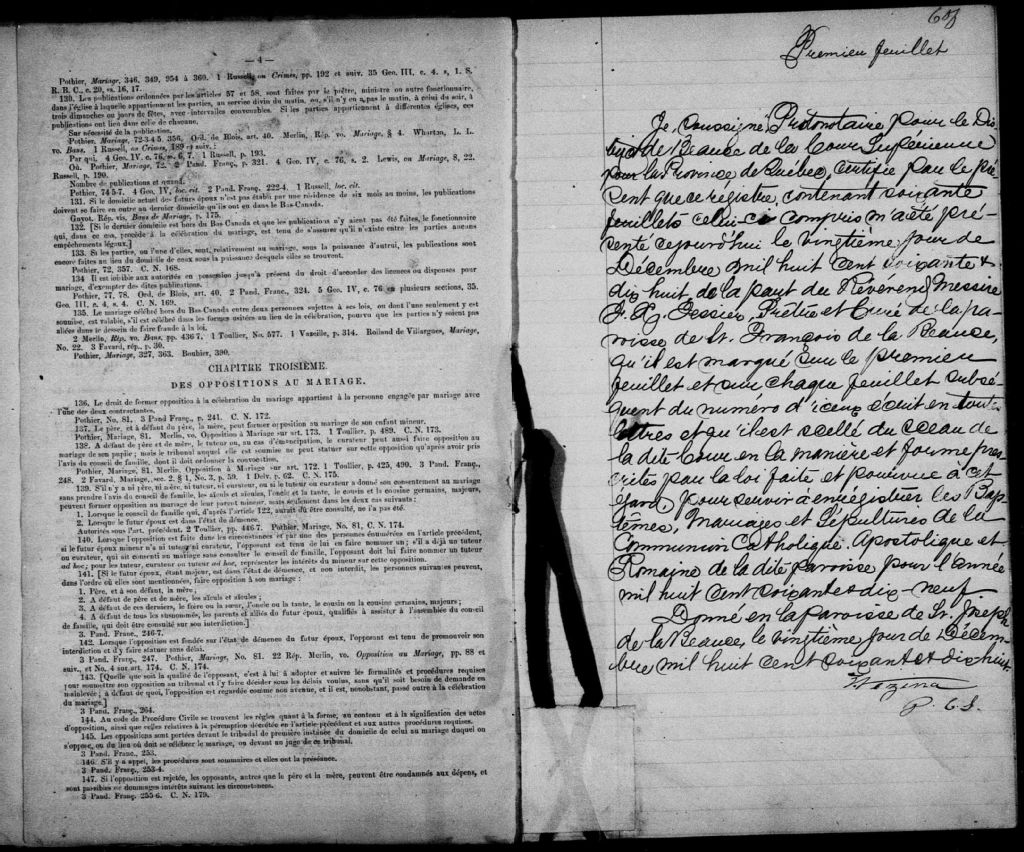 — 4 —
Pothier, Mariage, 346, 349, 954 à 360. 1 Russell, on Crimes, pp. 192 et suiv. 35 Geo. III, c. 4. s, 1. S.
R. B. C., c. 20, ss. 16, 17.
130. Les publications ordonnées par les articles 57 et 58, sont faites par le prêtre, ministre ou autre fonctionnaire,
dans l'église à laquelle appartiennent les parties, au service divin du matin, ou, s'il n'y en a pas le matin, à celui du soir, à
trois dimanches ou jours de fêtes, avec intervalles convenables. Si les parties appartiennent à différentes églises, ces
publications ont lieu dans celle de chacune.
Sur nécessité de la publication.
Pothier, Mariage, 72-3-4 5. 356, Ord. de Blois, art. 40. Merlin, Rép. vo. Mariage, § 4. Wharton, L. L.
vo. Bans. 1 Russell, on Crimes, 189 et suiv. :
Par qui. 4 Geo. IV, c. 76, s. 6, 7. 1 Russell, p. 193.
Où. Pothier, Mariage, 72. 2 Pand. Franç., p. 321. 4 Geo. IV, c. 76, s. 2. Lewis, on Mariage, 8, 22.
Russell, p. 190.
Nombre de publications et quand.
Pothier, 74 5-7. 4 Geo. IV, loc. cit. 2 Pand. Franç., 222-4. 1 Russell, loc. cit.
131. Si le domicile actuel des futurs époux n'est pas établi par une résidence de six mois au moins, les publications
doivent se faire en outre au dernier domicile qu'ils ont eu dans le Bas-Canada.
Guyot. Rép. vis. Bans de Mariage, p. 175.
132. [Si le dernier domicile est hors du Bas Canada et que les publications n'y aient pas été faites, le fonctionnaire
qui, dans ce cas, procède à la célébration du mariage, est tenu de s'assurer qu'il n'existe entre les parties aucuns
empêchements légaux.]
133. Si les parties, ou l'une d'elles, sont, relativement au mariage, sous la puissance d'autrui, les publications sont
encore faites au lieu du domicile de ceux sous la puissance desquels elles se trouvent.
Pothier, 72, 357. C. N. 168.
134 Il est loisible aux autorités en possession jusqu'à présent du droit d'accorder des licences ou dispenses pour
mariage, d'exempter des dites publications.
Pothier, 77, 78. Ord. de Blois, art. 40, 2 Pand. Franç., 324. 5 Geo. IV, c. 76 en plusieurs sections, 35.
Geo. III, c. 4, s. 4. C. N. 169.
135. Le mariage célébré hors du Bas-Canada entre deux personnes sujettes à ses lois, ou dont l'une seulement y est
soumise, est valable, s'il est célébré dans les formes usitées au lieu de la célébration, pourvu que les parties n'y soient pas
allées dans le dessein de faire fraude à la loi.
2 Merlin, Rép. vo. Bans, pp. 436 7. 1 Toullier, No. 577. 1 Vazeille, p. 314. Rolland de Villargues, Mariage,
No. 22. 3 Favard, rép., p. 30.
Pothier, Mariage, 327, 363. Bouhier, 390.
CHAPITRE TROISIÈME.
DES OPPOSITIONS AU MARIAGE.
136. Le droit de former opposition à la célébration du mariage appartient à la personne engagée par mariage avec
l'une des deux contractantes.
Pothier, No. 81. 3 Pand Franç., p. 241. C. N. 172.
137. Le père, et à défaut du père, la mère, peut former opposition au mariage de son enfant mineur.
Pothier, Mariage, 81. Merlin, vo. Opposition à Mariage sur art. 173. 1 Toullier, p. 489. C. N. 173.
138. A défaut de père et de mère, le tuteur ou, au cas d'émancipation, le curateur peut aussi faire opposition au
mariage de son pupile ; mais le tribunal auquel elle est soumise ne peut statuer sur cette opposition qu'après avoir pris
l'avis du conseil de famille, dont il doit ordonner la convocation.
Pothier, Mariage, 81. Merlin, Opposition à Mariage sur art. 172. 1 Toullier, p. 425, 490. 3 Pand. Franç.,
248. 2 Favard, Mariage, sec. 2, § 1, No. 3, p. 59. 1 Delv. p. 62. C. N. 175.
139. S'il n'y a ni père, ni mère, ni tuteur, ni curateur, ou si le tuteur ou curateur a donné son consentement au mariage
sans prendre l'avis du conseil de famille, les aïeuls et aïeules, l'oncle et la tante, le cousin et la cousine germains, majeurs,
peuvent former opposition au mariage de leur parent mineur, mais seulement dans les deux cas suivants :
1. Lorsque le conseil de famille qui, d'après l'article 122, aurait dû être consulté, ne l'a pas été.
2. Lorsque le futur époux est dans l'état de démence.
Autorités sous l'art. précédent, 2 Toullier, pp. 446-7. Pothier, Mariage, No. 81, C. N. 174.
140. Lorsque l'opposition est faite dans les circonstances et par une des personnes énumérées en l'article précédent,
si le futur époux mineur n'a ni tuteur ni curateur, l'opposant est tenu de lui en faire nommer un ; s'il a déjà un tuteur
ou curateur, qui ait consenti au mariage sans consulter le conseil de famille, l'opposant doit lui faire nommer un tuteur
ad hoc, pour les tuteur, curateur ou tuteur ad hoc, représenter les intérêts du mineur sur cette opposition.
141. [Si le futur époux, étant majeur, est dans l'état de démence, et non interdit, les personnes suivantes peuvent,
dans l'ordre où elles sont mentionnées, faire opposition à son mariage :
1. Père, et à son défaut, la mère ;
2. A défaut de père et de mère, les aïeuls et aïeules ;
3. A défaut de ces derniers, le frère ou la sœur, l'oncle ou la tante, le cousin ou la cousine germains, majeurs ;
4. A défaut de tous les susnommés, les parents et alliés du futur époux, qualifiés à assister à l'assemblée du conseil
de famille, qui doit être consulté sur son interdiction.]
3. Pand. Franç., 246-7.
142. Lorsque l'opposition est fondée sur l'état de démence du futur époux, l'opposant est tenu de promouvoir son
interdiction et d'y faire statuer sans délai.
3 Pand. Franç., 247. Pothier, Mariage, No. 81. 22 Rép. Merlin, vo. Opposition au Mariage, pp. 88 et
suiv., et No. 4 sur art. 174. C. N. 174.
143. [Quelle que soit la qualité de l'opposant, c'est à lui à adopter et suivre les formalités et procédures requises
pour soumettre son opposition au tribunal et l'y faire décider sous les délais voulus, sans qu'il soit besoin de demande en
mainlevée ; à défaut de quoi, l'opposition est regardée comme non avenue, et il est, nonobstant, passé outre à la célébration
du mariage.]
3 Pand. Franç., 264.
144. Au code de Procédure Civile se trouvent les règles quant à la forme, au contenu et à la signification des actes
d'opposition, ainsi que celles relatives à la péremption décrétée en l'article précédent et aux autres procédures requises.
145. Les oppositions sont portées devant le tribunal de première instance du domicile de celui au mariage duquel on
s'oppose, ou du lieu où doit se célébrer le mariage, ou devant un juge de ce tribunal.
3 Pand. Franç., 253.
146. S'il y a appel, les procédures sont sommaires et elles ont la préséance.
3 Pand. Franç., 253-4.
147. Si l'opposition est rejetée, les opposants, autres que le père et la mère, peuvent être condamnés aux dépens, et
sont passibles de dommages intérêts suivant les circonstances.
3 Pand. Franç. 255-6. C. N. 179.
Premier feuillet
Je, soussigné, Protonotaire pour le Dis-
trict de Beauce de la Cour Supérieure
pour la Province de Québec, certifie par le pré-
sent que ce régistre, contenant soixante
feuillets celui-ci compris m'a été pré-
senté cejourd'hui le vingtième jour de
Décembre mil huit cent soixante &
dix huit de la part du Révérend Messire
Tessier, Prêtre et Curé de la pa-
roisse de St. François de la Beauce,
qu'il est marqué sur le premier
feuillet et sur chaque feuillet subsé-
quent du numéro d'iceux écrit en toutes
lettres et qu'il est scellé du sceau de
la dite Cour en la manière et forme pres-
crites par la loi faite et pourvue à cet
égard, pour servir à enrégistrer les Bap-
têmes, Mariages et Sépultures de la
Communion Catholique, Apostolique et
Romaine de la dite paroisse pour l'année
mil huit cent soixante & dix-neuf.
Donné en la paroisse de St. Joseph
de la Beauce, le vingtième jour de Décem-
bre mil huit cent soixante et dix-huit
Vézina
P. C. S.